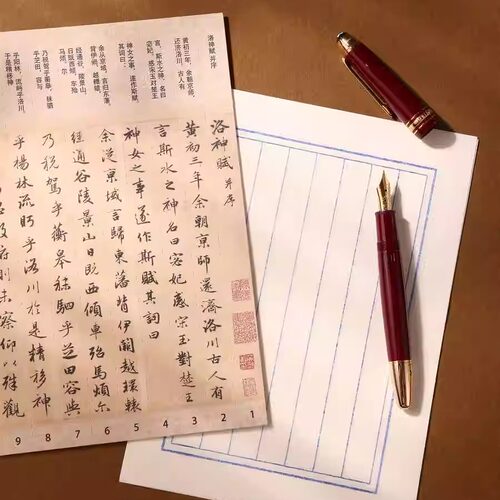 洛神赋并序
黄初三年,余朝京师,
还济洛川。古人有
言,斯水之神,名曰
宓妃。感宋玉对楚王
神女之事,遂作斯赋
其词曰:
余从京域,言归东藩,
背伊阙,越轘辕,
经通谷,陵景山。
日既西倾,车殆
马烦。尔
乃税驾乎蘅皋,秣驷
乎芝田,容与
乎阳林,流眄乎洛川,
于是精移神
洛神賦 并序
黄初三年余朝京師還濟洛川古人有
言斯水之神名曰宓妃感宋玉對楚王
神女之事遂作斯賦其詞曰
余從京域言歸東藩背伊闕越轘轅
經通谷陵景山日既西傾車殆馬煩尔
乃税駕乎蘅皋秣駟乎芝田容與
乎楊林流眄乎洛川於是精移神
俯則未察仰以殊觀
1
2
3
4
5
6
7
8
9